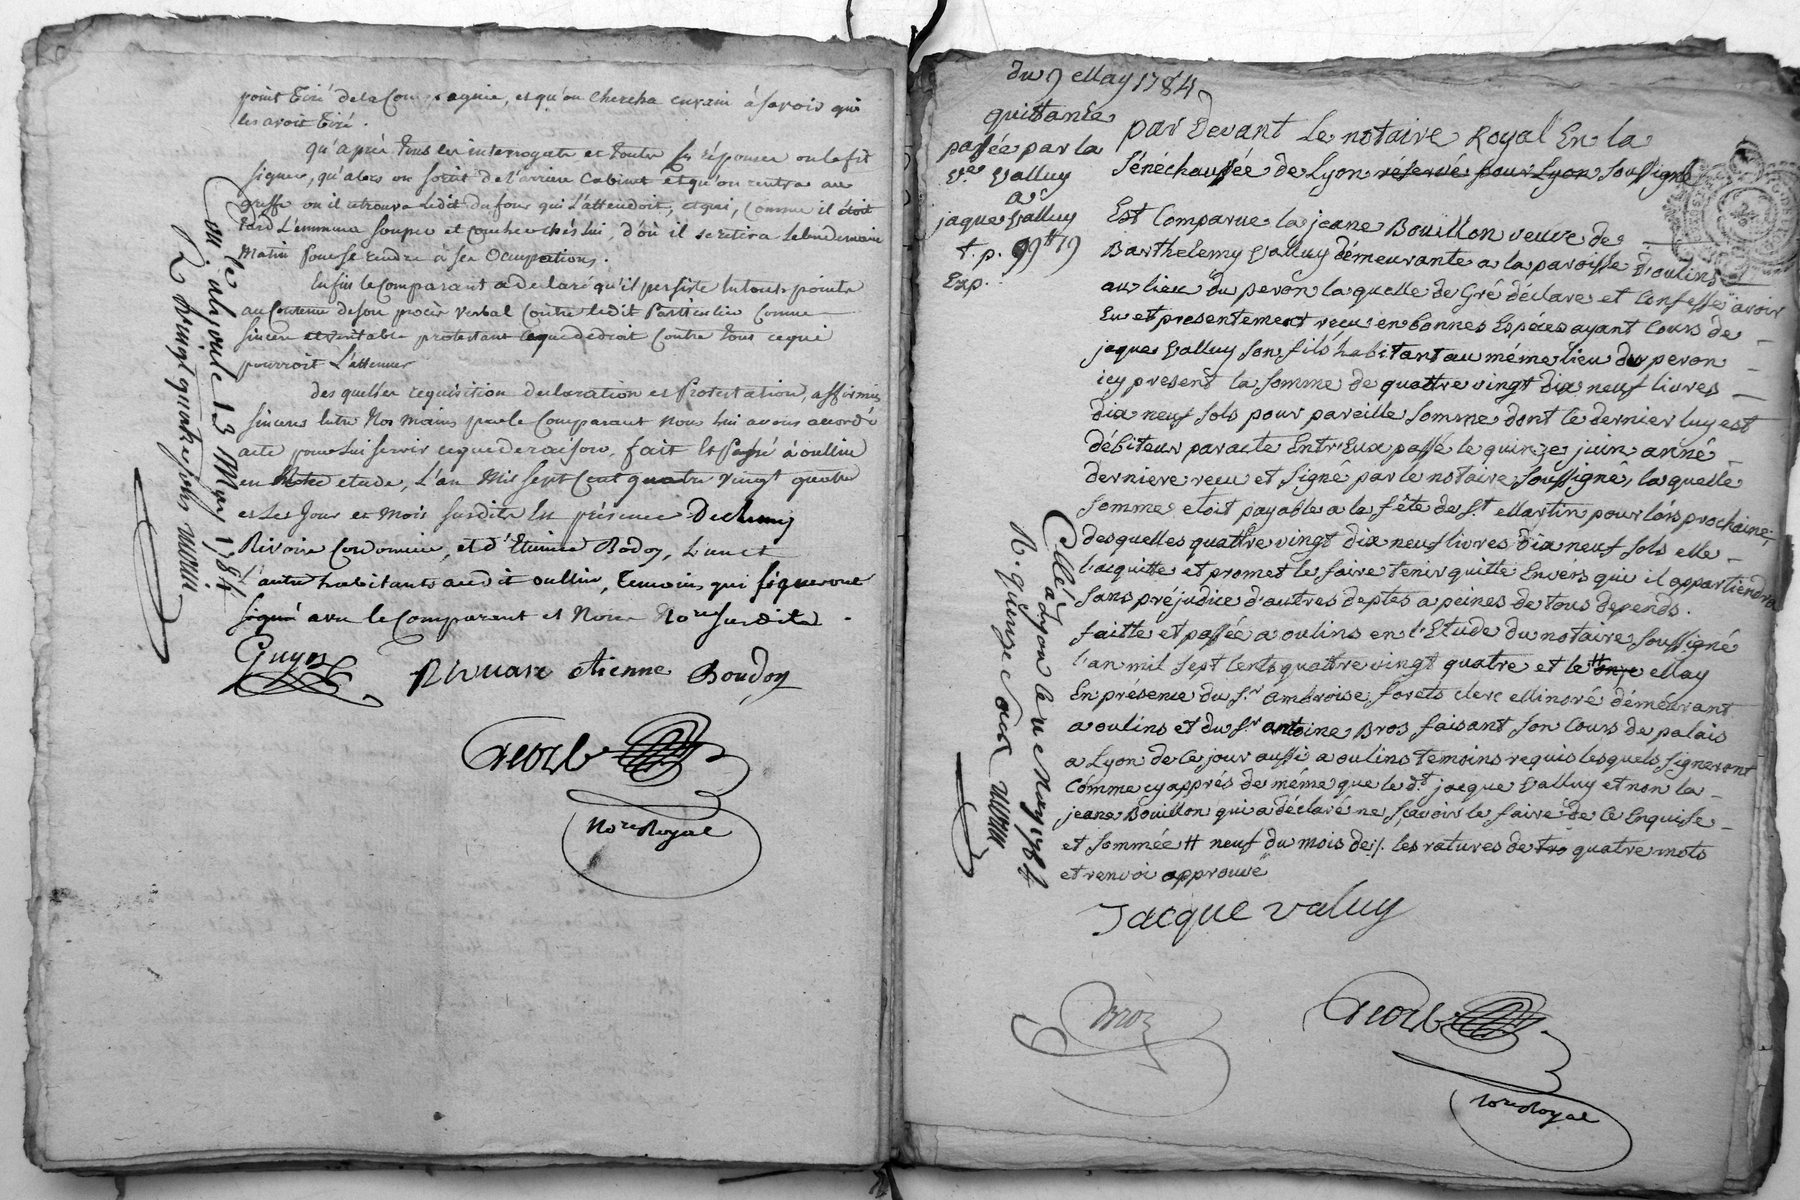 point tiré de la Compagnie, et qu'on chercha envain à savoir qui
les avoit tiré.
qu'après tous les interrogats et toutes ses réponses on le fit
signer, qu'alors on sortit de l'arriere Cabinet et qu'on rentra au
greffe où il retrouva ledit Dufour qui l'attendoit, et qui, comme il étoit
tard l'emmena souper et coucher chés lui, d'où il se retira le lendemain
matin pour se rendre à ses occupations.
Enfin le Comparant a déclaré qu'il persiste en tous points
au contenu de son procès verbal contre ledit Particulier comme
sincere et véritable protestant de tout ce que de droit contre tous ceux qui
pourroit l'attenuer
des quelles requisition declaration et Protestation, affirmées
sinceres entre nos mains par le Comparant nous lui avons accordé
acte pour lui servir ce que de raison, fait et passé à oullin
en notre etude, l'an mil sept cent quatre vingt quatre
et les jour et mois susdits en présence
Rivoire Cordonnier, et d'Etienne Bodoy, l'un et
l'autre habitants audit oullin, temoins qui signeront
signé avec le comparant et Nous Nore susdits.
Guyot
Rivuare etienne Boudoy
Nore Royal
13 May 1784
R vingt quatre sols
du 9 May 1784
quittance
passée par la
Ve Valluy
a
jaque Valluy
t. p. 99tt 19
Exp.
par devant le notaire Royal En la
Sénéchaussée de Lyon réservé pour Lyon soussigné
Est Comparue la jeane Bouillon veuve de
Barthelemy Valluy démeurante a la paroisse d'oulins
au lieu du peron laquelle de Gré déclare et Confesse avoir
Eu et presentement reçu en bonnes Espéces ayant Cours de
jaque Valluy son fils habitant au méme lieu du peron
icy present la somme de quattre vingt dix neuf livres
dix neuf sols pour pareille somme dont le dernier luy est
débiteur par acte Entr'Eux passé le quinze juin anné
derniere reçu et signé par le notaire soussigné, laquelle
somme etoit payable a la fête de St Martin pour lors prochaine,
desquelles quattre vingt dix neuf livres dix neuf sols elle
l'acquitte et promet le faire tenir quitte Envers qui il appartiendra
sans préjudice d'autres deptes a peines de tous depends.
faitte et passée a oulins en l'Etude du notaire soussigné
l'an mil sept cents quattre vingt quatre et le # onze May
En présence du sr ambroise forets clerc Minoré démeurant
a oulins et du sr antoine Bros faisant son Cours de palais
a Lyon de ce jour aussi a oulins temoins requis lesquels signeront
Comme cy apprés de méme que le dt jacque Valluy et non la
jeane Bouillon qui a déclaré ne sçavoir le faire de ce Enquise
et sommée # neuf du mois de ·/· les ratures de tro quatre mots
et renvoi approuvé
Jacque valuy
Broz
Nore Royal
Cllé a Lyon le May 1784
R. quinze sols